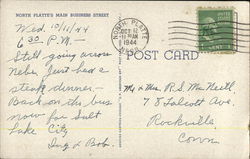 NORTH PLATTE'S MAIN BUSINESS STREET
Wed. 10/11/44
6:30 P.M. —
Still going across
Nebr. Just had a
steak dinner —
Back on the bus
now for Salt
Lake City
Inz & Bob.
NORTH PLATTE
OCT 12
1944
POST CARD
Mr & Mrs. R.S. MacNeill
78 Talcott Ave.
Rockville
Conn